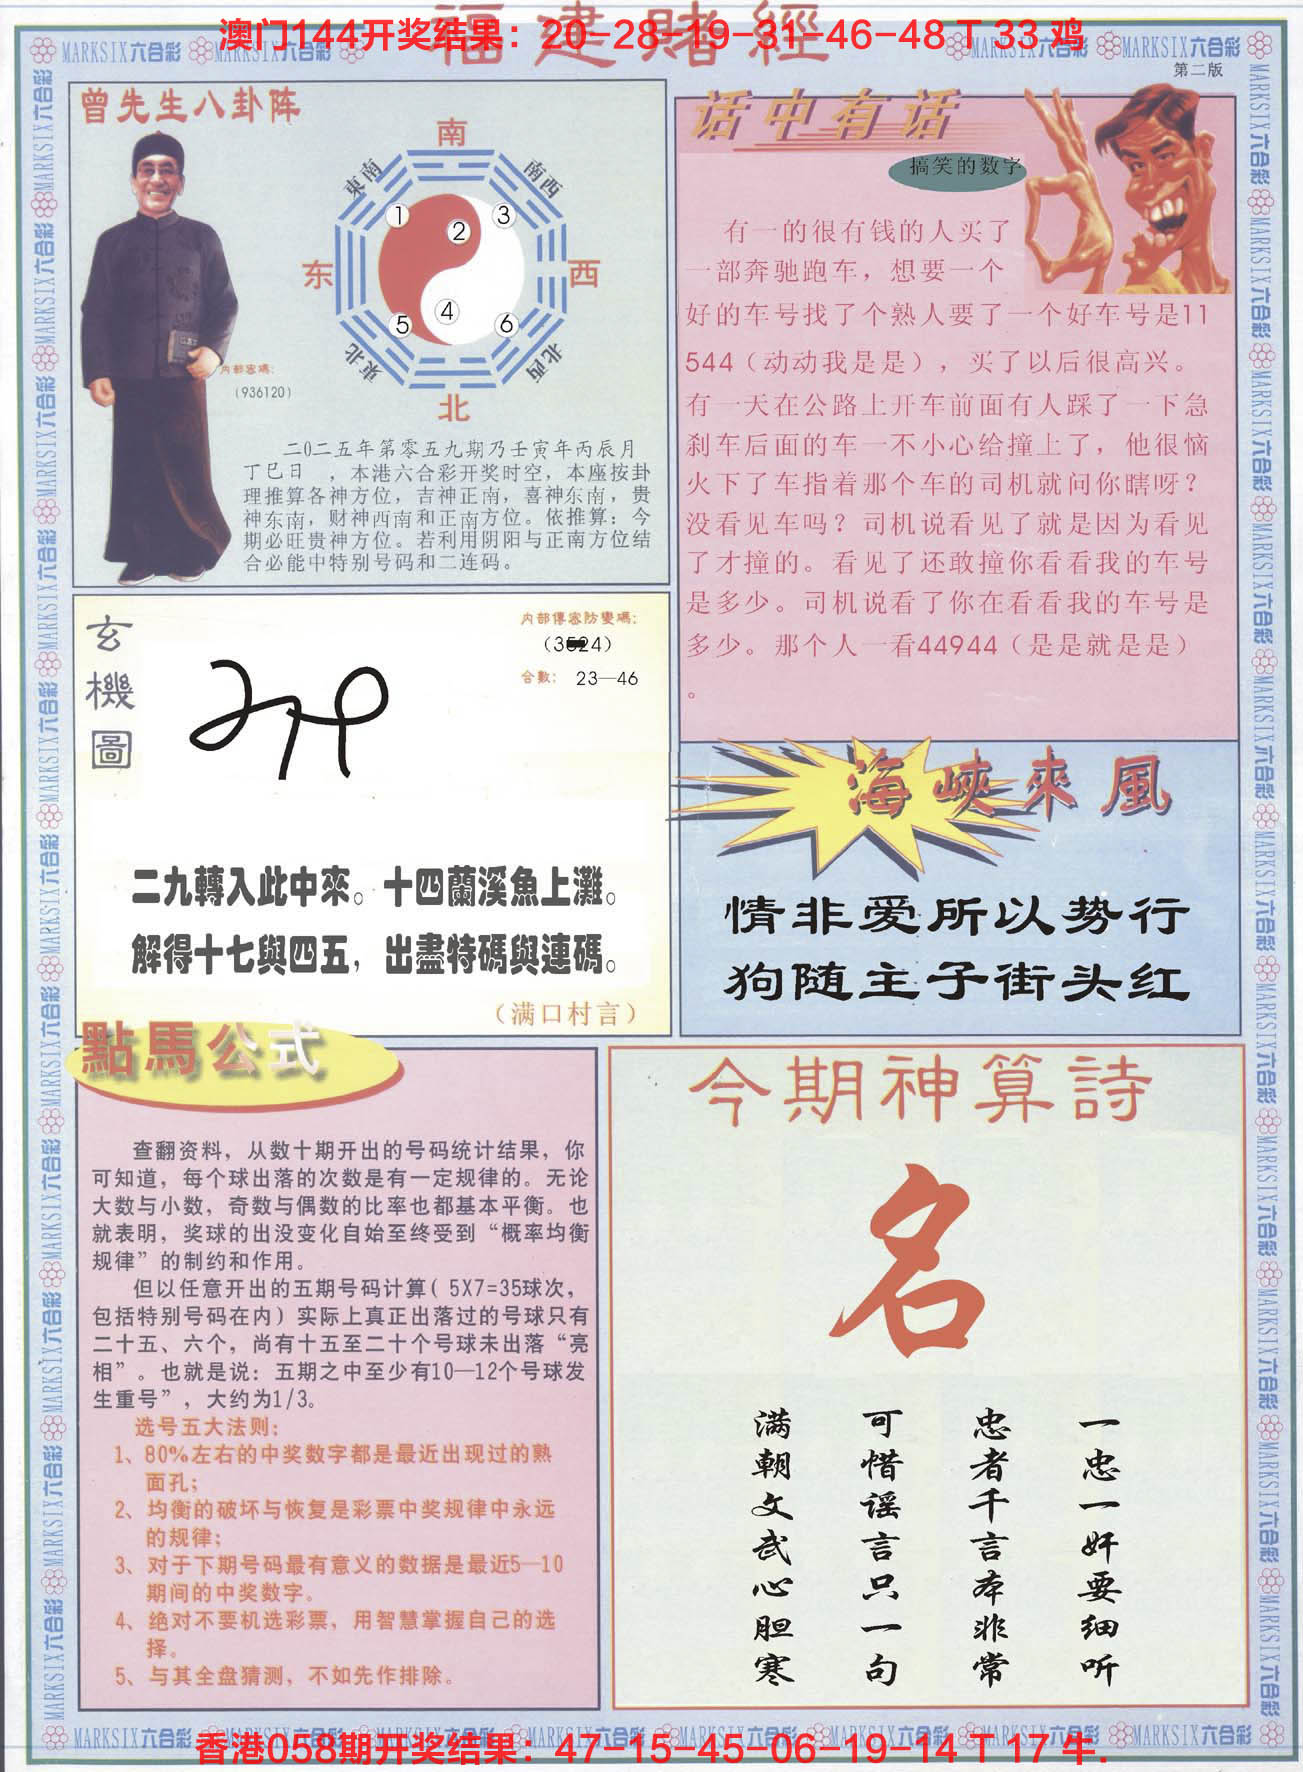 福建賭經
澳门144开奖结果：20-28-19-31-46-48 T 33 鸡
MARKSIX六合彩
第二版
曾先生八卦阵
南
東南
南西
东
西
東北
北西
北
1
2
3
4
5
6
内部密碼：
（936120）
二0二五年第零五九期乃壬寅年丙辰月
丁巳日　，本港六合彩开奖时空，本座按卦
理推算各神方位，吉神正南，喜神东南，贵
神东南，财神西南和正南方位。依推算：今
期必旺贵神方位。若利用阴阳与正南方位结
合必能中特别号码和二连码。
话中有话
搞笑的数字
有一的很有钱的人买了
一部奔驰跑车，想要一个
好的车号找了个熟人要了一个好车号是11
544（动动我是是），买了以后很高兴。
有一天在公路上开车前面有人踩了一下急
刹车后面的车一不小心给撞上了，他很恼
火下了车指着那个车的司机就问你瞎呀？
没看见车吗？司机说看见了就是因为看见
了才撞的。看见了还敢撞你看看我的车号
是多少。司机说看了你在看看我的车号是
多少。那个人一看44944（是是就是是）
。
玄機圖
内部傳密防變碼：
合數： 23—46
二九轉入此中來。十四蘭溪魚上灘。
解得十七與四五，出盡特碼與連碼。
（满口村言）
海峽來風
情非爱所以势行
狗随主子街头红
點馬公式
查翻资料，从数十期开出的号码统计结果，你
可知道，每个球出落的次数是有一定规律的。无论
大数与小数，奇数与偶数的比率也都基本平衡。也
就表明，奖球的出没变化自始至终受到“概率均衡
规律”的制约和作用。
但以任意开出的五期号码计算( 5X7=35球次，
包括特别号码在内）实际上真正出落过的号球只有
二十五、六个，尚有十五至二十个号球未出落“亮
相”。也就是说：五期之中至少有10—12个号球发
生重号”，大约为1/3。
选号五大法则：
1、80%左右的中奖数字都是最近出现过的熟
面孔；
2、均衡的破坏与恢复是彩票中奖规律中永远
的规律；
3、对于下期号码最有意义的数据是最近5—10
期间的中奖数字。
4、绝对不要机选彩票，用智慧掌握自己的选
择。
5、与其全盘猜测，不如先作排除。
今期神算詩
名
一忠一奸要细听
忠者千言本非常
可惜谣言只一句
满朝文武心胆寒
MARKSIX六合彩
香港058期开奖结果：47-15-45-06-19-14 T 17 牛.